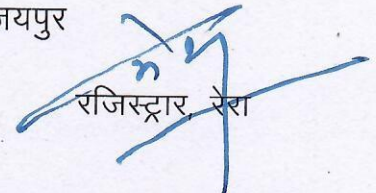 जयपुर
रजिस्ट्रार, रेरा